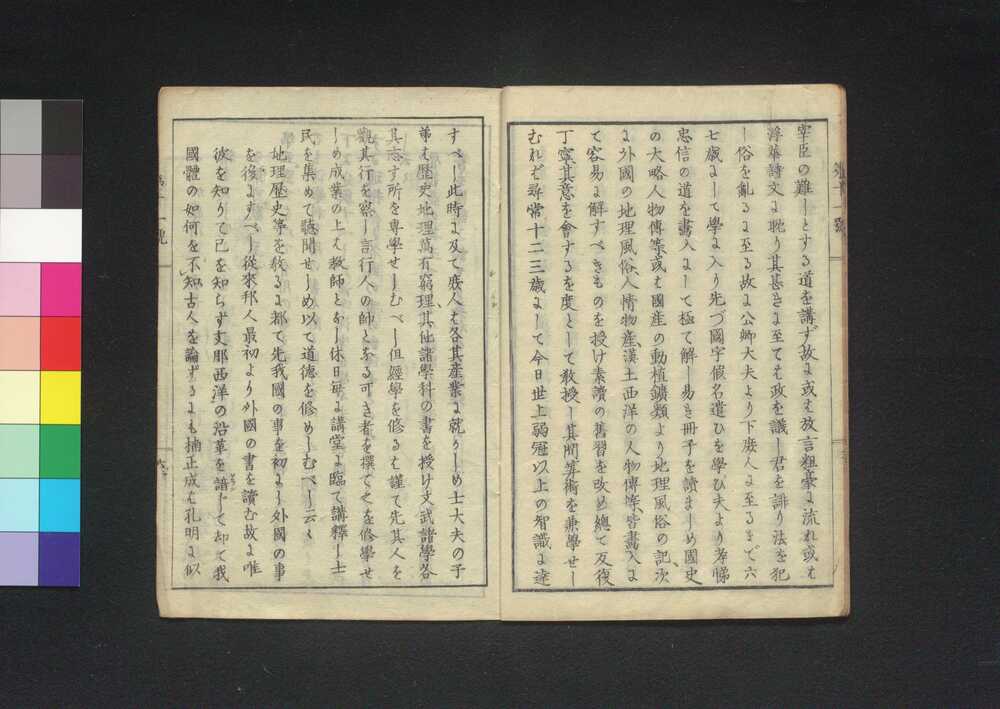 宰臣の難しとする道を講ず故に或は放言粗豪に流れ或は
浮華詩文に耽り其甚きに至ては政を議し君を誹り法を犯
し俗を亂るに至る故に公卿大夫より下庶人に至るまで六
七歳にして學に入り先づ國字假名遣ひを學び夫より孝悌
忠信の道を畵入にして極て解し易き册子を讀ましめ國史
の大略人物傳等或は國産の動植鑛類より地理風俗の記次
に外國の地理風俗人情物産漢土西洋の人物傳等皆畵入に
て容易に解すべきものを授け素讀の舊習を改め總て反復
丁寧其意を會するを度として教授し其間算術を兼學せし
むれば尋常十二三歳にして今日世上弱冠以上の智識に達
すべし此時に及て庶人は各其産業に就かしめ士大夫の子
弟は歴史地理萬有窮理其他諸學科の書を授け文武諸學各
其志す所を專學せしむべし但經學を修るは謹て先其人を
觀其行を察し言行人の師となる可き者を撰て之を修學せ
しめ成業の上は教師となし休日毎に講堂に臨て講釋し士
民を集めて聽聞せしめ以て道德を修めしむべし云々
地理歴史等を教るは都て先我國の事を初にし外國の事
を後にすべし從來邦人最初より外國の書を讀む故に唯
彼を知りて己を知らず支那西洋の沿革を諳じて却て我
國體の如何を不知古人を論ずるにも楠正成は孔明に似